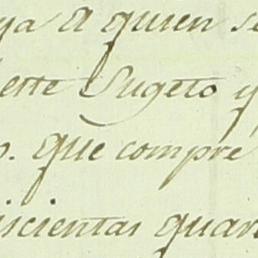 ya a quien se
este Sugeto y
p. que compré
iscientas quar